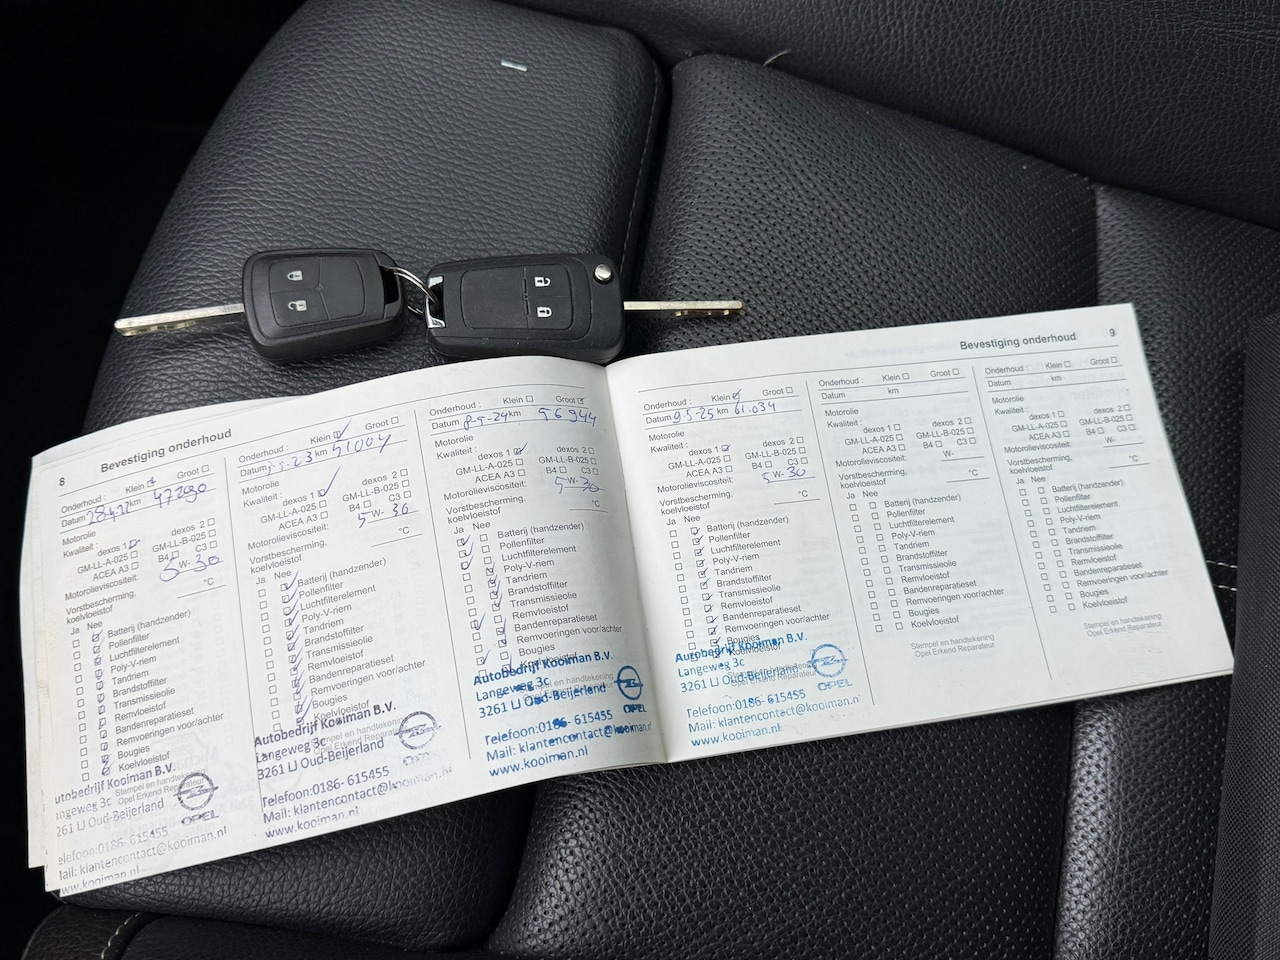 8
Bevestiging onderhoud
Onderhoud : Klein Groot
Datum 28-4-22 km 47290
Motorolie
Kwaliteit : dexos 1 dexos 2
GM-LL-A-025 GM-LL-B-025
ACEA A3 B4 C3
Motorolieviscositeit: 5 W- 30
Vorstbescherming, °C
koelvloeistof
Ja Nee
Batterij (handzender)
Pollenfilter
Luchtfilterelement
Poly-V-riem
Tandriem
Brandstoffilter
Transmissieolie
Remvloeistof
Bandenreparatieset
Remvoeringen voor/achter
Bougies
Koelvloeistof
Stempel en handtekening
Opel Erkend Reparateur
utobedrijf Kooiman B.V.
angeweg 3c
261 LJ Oud-Beijerland
OPEL
elefoon:0186- 615455
Mail: klantencontact@kooiman.nl
www.kooiman.nl
Onderhoud : Klein Groot
Datum 5-23 km 51004
Motorolie
Kwaliteit : dexos 1 dexos 2
GM-LL-A-025 GM-LL-B-025
ACEA A3 B4 C3
Motorolieviscositeit: 5 W- 30
Vorstbescherming, °C
koelvloeistof
Ja Nee
Batterij (handzender)
Pollenfilter
Luchtfilterelement
Poly-V-riem
Tandriem
Brandstoffilter
Transmissieolie
Remvloeistof
Bandenreparatieset
Remvoeringen voor/achter
Bougies
Koelvloeistof
Stempel en handtekening
Opel Erkend Reparateur
Autobedrijf Kooiman B.V.
Langeweg 3c
3261 LJ Oud-Beijerland
OPEL
Telefoon:0186- 615455
Mail: klantencontact@kooiman.nl
www.kooiman.nl
Onderhoud : Klein Groot
Datum 8-5-24 km 56944
Motorolie
Kwaliteit : dexos 1 dexos 2
GM-LL-A-025 GM-LL-B-025
ACEA A3 B4 C3
Motorolieviscositeit: 5 W- 30
Vorstbescherming, °C
koelvloeistof
Ja Nee
Batterij (handzender)
Pollenfilter
Luchtfilterelement
Poly-V-riem
Tandriem
Brandstoffilter
Transmissieolie
Remvloeistof
Bandenreparatieset
Remvoeringen voor/achter
Bougies
Koelvloeistof
Stempel en handtekening
Opel Erkend Reparateur
Autobedrijf Kooiman B.V.
Langeweg 3c
3261 LJ Oud-Beijerland
OPEL
Telefoon:0186- 615455
Mail: klantencontact@kooiman.nl
www.kooiman.nl
Bevestiging onderhoud
9
Onderhoud : Klein Groot
Datum 9-5-25 km 61.034
Motorolie
Kwaliteit : dexos 1 dexos 2
GM-LL-A-025 GM-LL-B-025
ACEA A3 B4 C3
Motorolieviscositeit: 5 W- 30
Vorstbescherming, °C
koelvloeistof
Ja Nee
Batterij (handzender)
Pollenfilter
Luchtfilterelement
Poly-V-riem
Tandriem
Brandstoffilter
Transmissieolie
Remvloeistof
Bandenreparatieset
Remvoeringen voor/achter
Bougies
Koelvloeistof
Stempel en handtekening
Opel Erkend Reparateur
Autobedrijf Kooiman B.V.
Langeweg 3c
3261 LJ Oud-Beijerland
OPEL
Telefoon:0186- 615455
Mail: klantencontact@kooiman.n
www.kooiman.nl
Onderhoud : Klein Groot
Datum km
Motorolie
Kwaliteit : dexos 1 dexos 2
GM-LL-A-025 GM-LL-B-025
ACEA A3 B4 C3
Motorolieviscositeit: W-
Vorstbescherming, °C
koelvloeistof
Ja Nee
Batterij (handzender)
Pollenfilter
Luchtfilterelement
Poly-V-riem
Tandriem
Brandstoffilter
Transmissieolie
Remvloeistof
Bandenreparatieset
Remvoeringen voor/achter
Bougies
Koelvloeistof
Stempel en handtekening
Opel Erkend Reparateur
Onderhoud : Klein Groot
Datum km
Motorolie
Kwaliteit : dexos 1 dexos 2
GM-LL-A-025 GM-LL-B-025
ACEA A3 B4 C3
Motorolieviscositeit: W-
Vorstbescherming, °C
koelvloeistof
Ja Nee
Batterij (handzender)
Pollenfilter
Luchtfilterelement
Poly-V-riem
Tandriem
Brandstoffilter
Transmissieolie
Remvloeistof
Bandenreparatieset
Remvoeringen voor/achter
Bougies
Koelvloeistof
Stempel en handtekening
Opel Erkend Reparateur